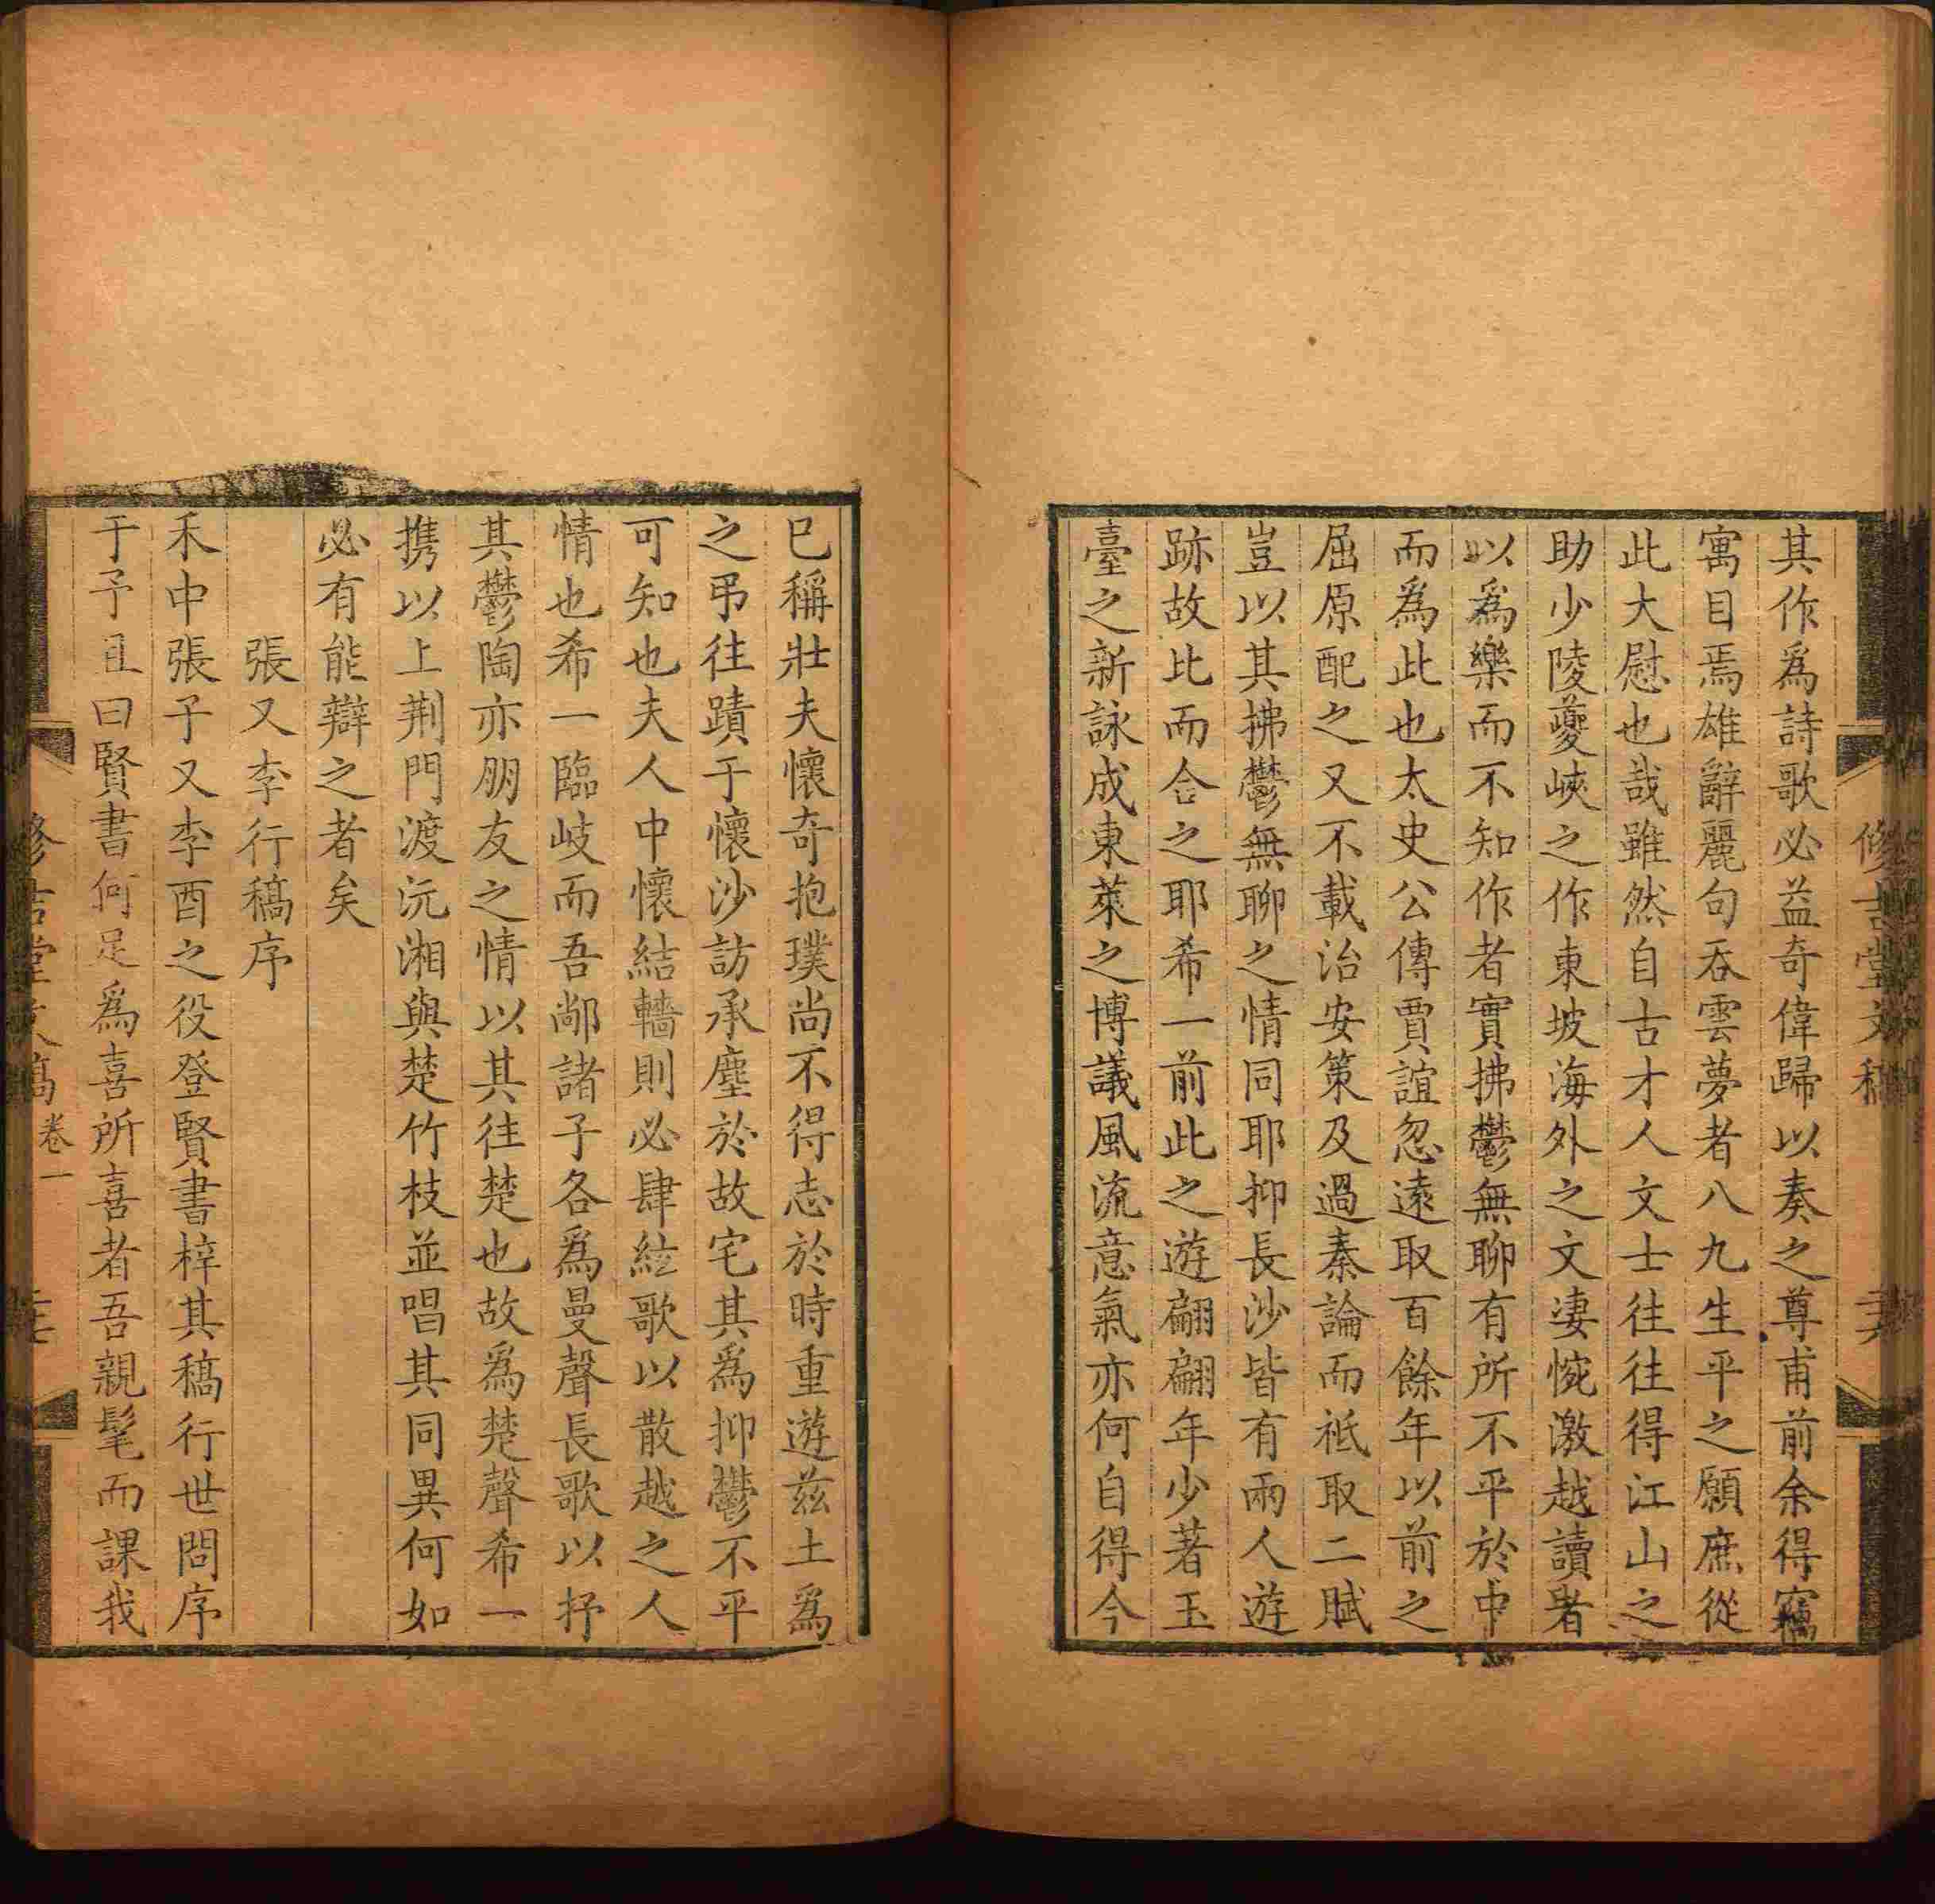 其作爲詩歌必益奇偉歸以奏之尊甫前余得竊
寓目焉雄辭麗句吞雲夢者八九生平之願庶從
此大慰也哉雖然自古才人文士往往得江山之
助少陵夔峽之作東坡海外之文淒惋激越讀者
以爲樂而不知作者實拂鬱無聊有所不平於中
而爲此也太史公傳賈誼忽遠取百餘年以前之
屈原配之又不載治安策及過秦論而祗取二賦
豈以其拂鬱無聊之情同耶抑長沙皆有兩人遊
跡故比而合之耶希一前此之遊翩翩年少著玉
臺之新詠成東萊之博議風流意氣亦何自得今
已稱壯夫懷奇抱璞尚不得志於時重遊茲土爲
之弔往蹟于懷沙訪承塵於故宅其爲抑鬱不平
可知也夫人中懷結轖則必肆絃歌以散越之人
情也希一臨岐而吾鄗諸子各爲曼聲長歌以抒
其鬱陶亦朋友之情以其往楚也故爲楚聲希一
攜以上荆門渡沅湘與楚竹枝並唱其同異何如
必有能辯之者矣
張又李行稿序
禾中張子又李酉之役登賢書梓其稿行世問序
于予且曰賢書何足爲喜所喜者吾親髦而課我
修吉堂文稿
卷一